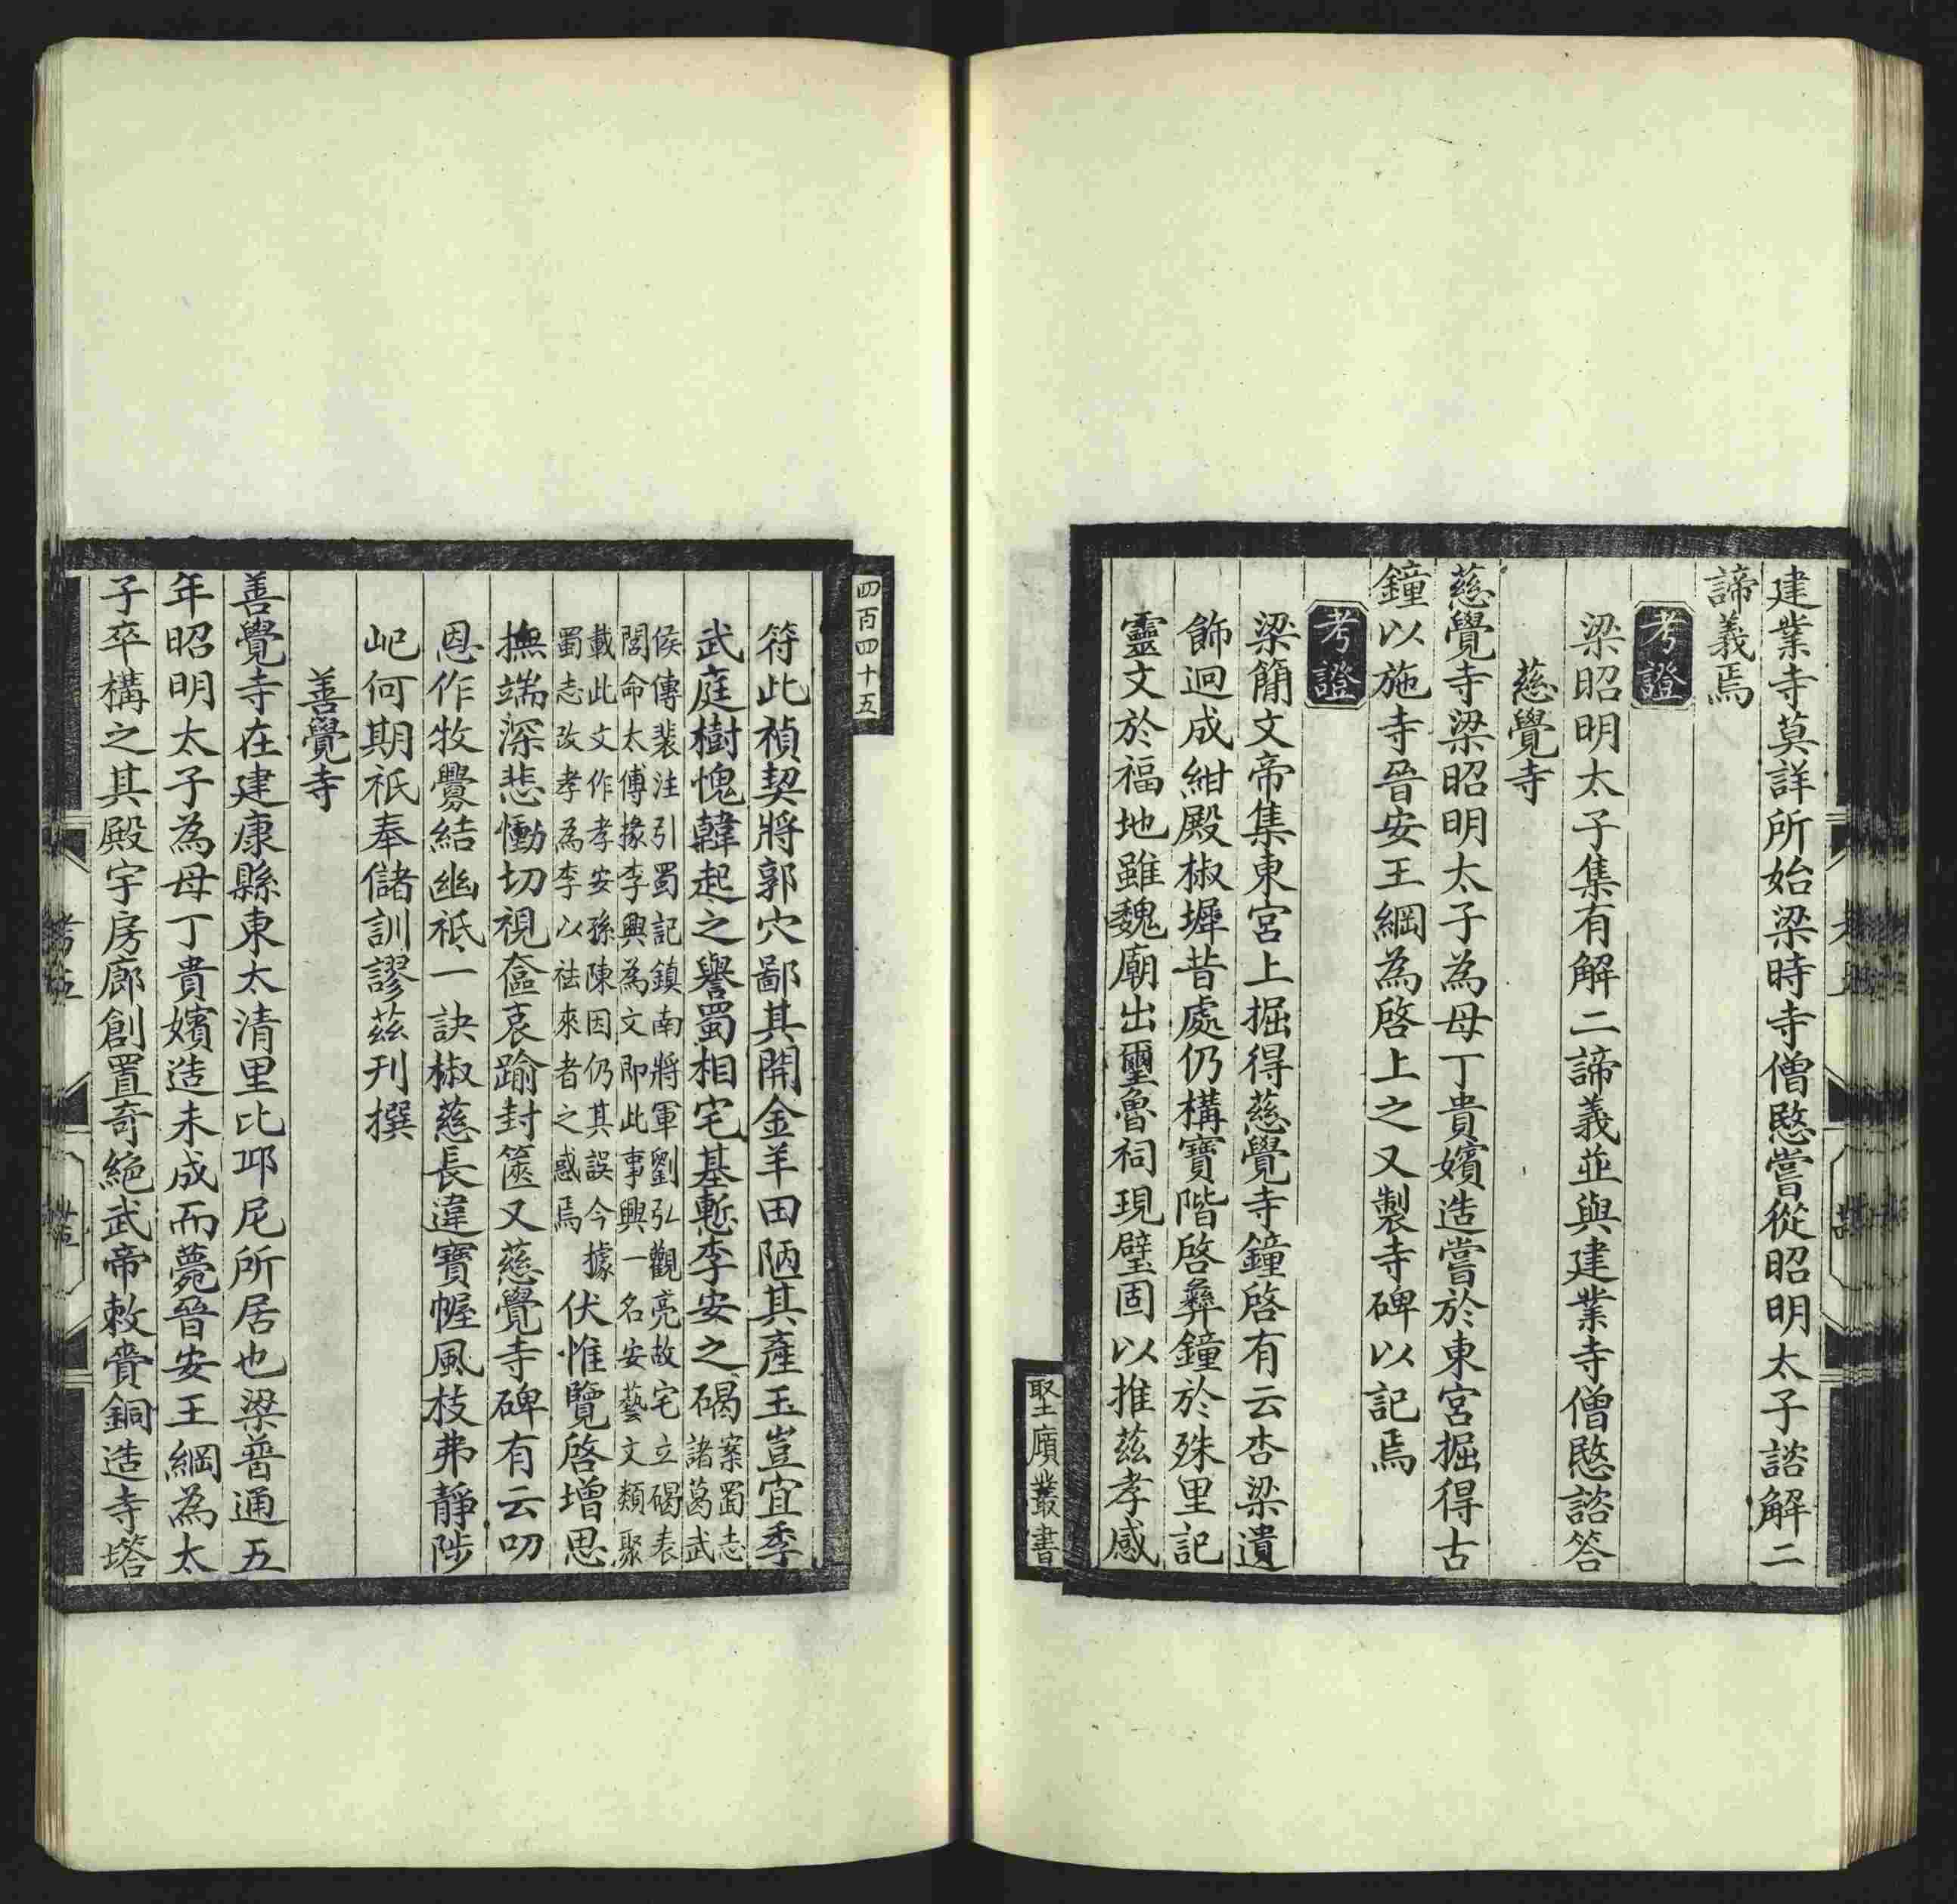 建業寺莫詳所始梁時寺僧愍嘗從昭明太子諮解二
諦義焉
考證
梁昭明太子集有解二諦義並與建業寺僧愍諮答
慈覺寺
慈覺寺梁昭明太子為母丁貴嬪造嘗於東宮掘得古
鐘以施寺晉安王綱為啓上之又製寺碑以記焉
考證
梁簡文帝集東宮上掘得慈覺寺鐘啓有云杏梁遺
飾迥成紺殿椒墀昔處仍構寶階啓彝鐘於殊里記
靈文於福地雖魏廟出璽魯祠現璧固以推茲孝感
堅㢑叢書
四百四十五
符此禎契將郭穴鄙其開金羊田陋其產玉豈宜季
武庭樹愧韓起之譽蜀相宅基慙李安之碣案蜀志
諸葛武
侯傳裴注引蜀記鎮南將軍劉弘觀亮故宅立碣表
閭命太傅掾李興為文即此事興一名安藝文類聚
載此文作孝安孫陳因仍其誤今據
蜀志改孝為李以祛來者之惑焉
伏惟覽啓增思
撫端深悲慟切視奩哀踰封篋又慈覺寺碑有云叨
恩作牧釁結幽祇一訣椒慈長違寶幄風枝弗靜陟
屺何期祇奉儲訓謬茲刊撰
善覺寺
善覺寺在建康縣東太清里比邱尼所居也梁普通五
年昭明太子為母丁貴嬪造未成而薨晉安王綱為太
子卒構之其殿宇房廊創置奇絕武帝敕賚銅造寺塔